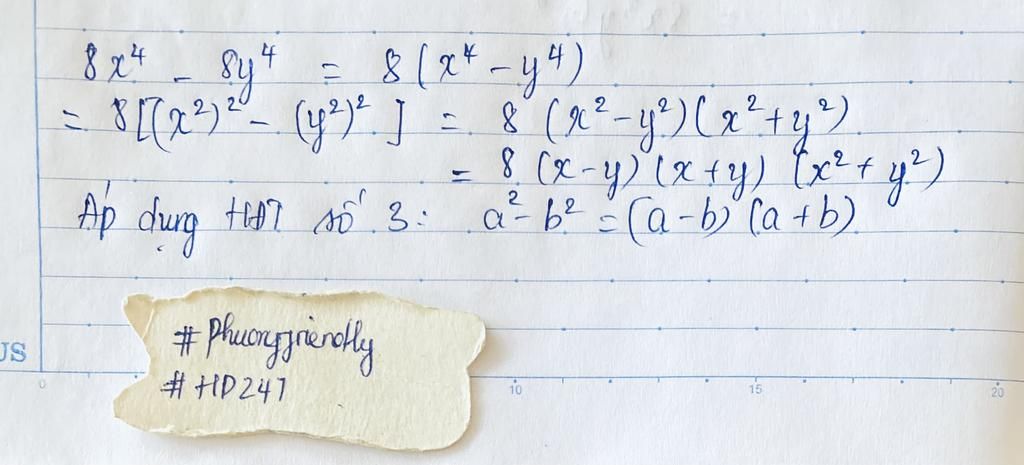 8x⁴ - 8y⁴ = 8(x⁴ - y⁴)
= 8[(x²)² - (y²)²] = 8(x² - y²)(x² + y²)
= 8(x - y)(x + y)(x² + y²)
Áp dụng HĐT số 3: a² - b² = (a - b)(a + b)
# Phuongfriendly
# HD247
US
0 10 15 20